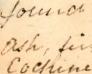 found
Ash, fin
Cochine